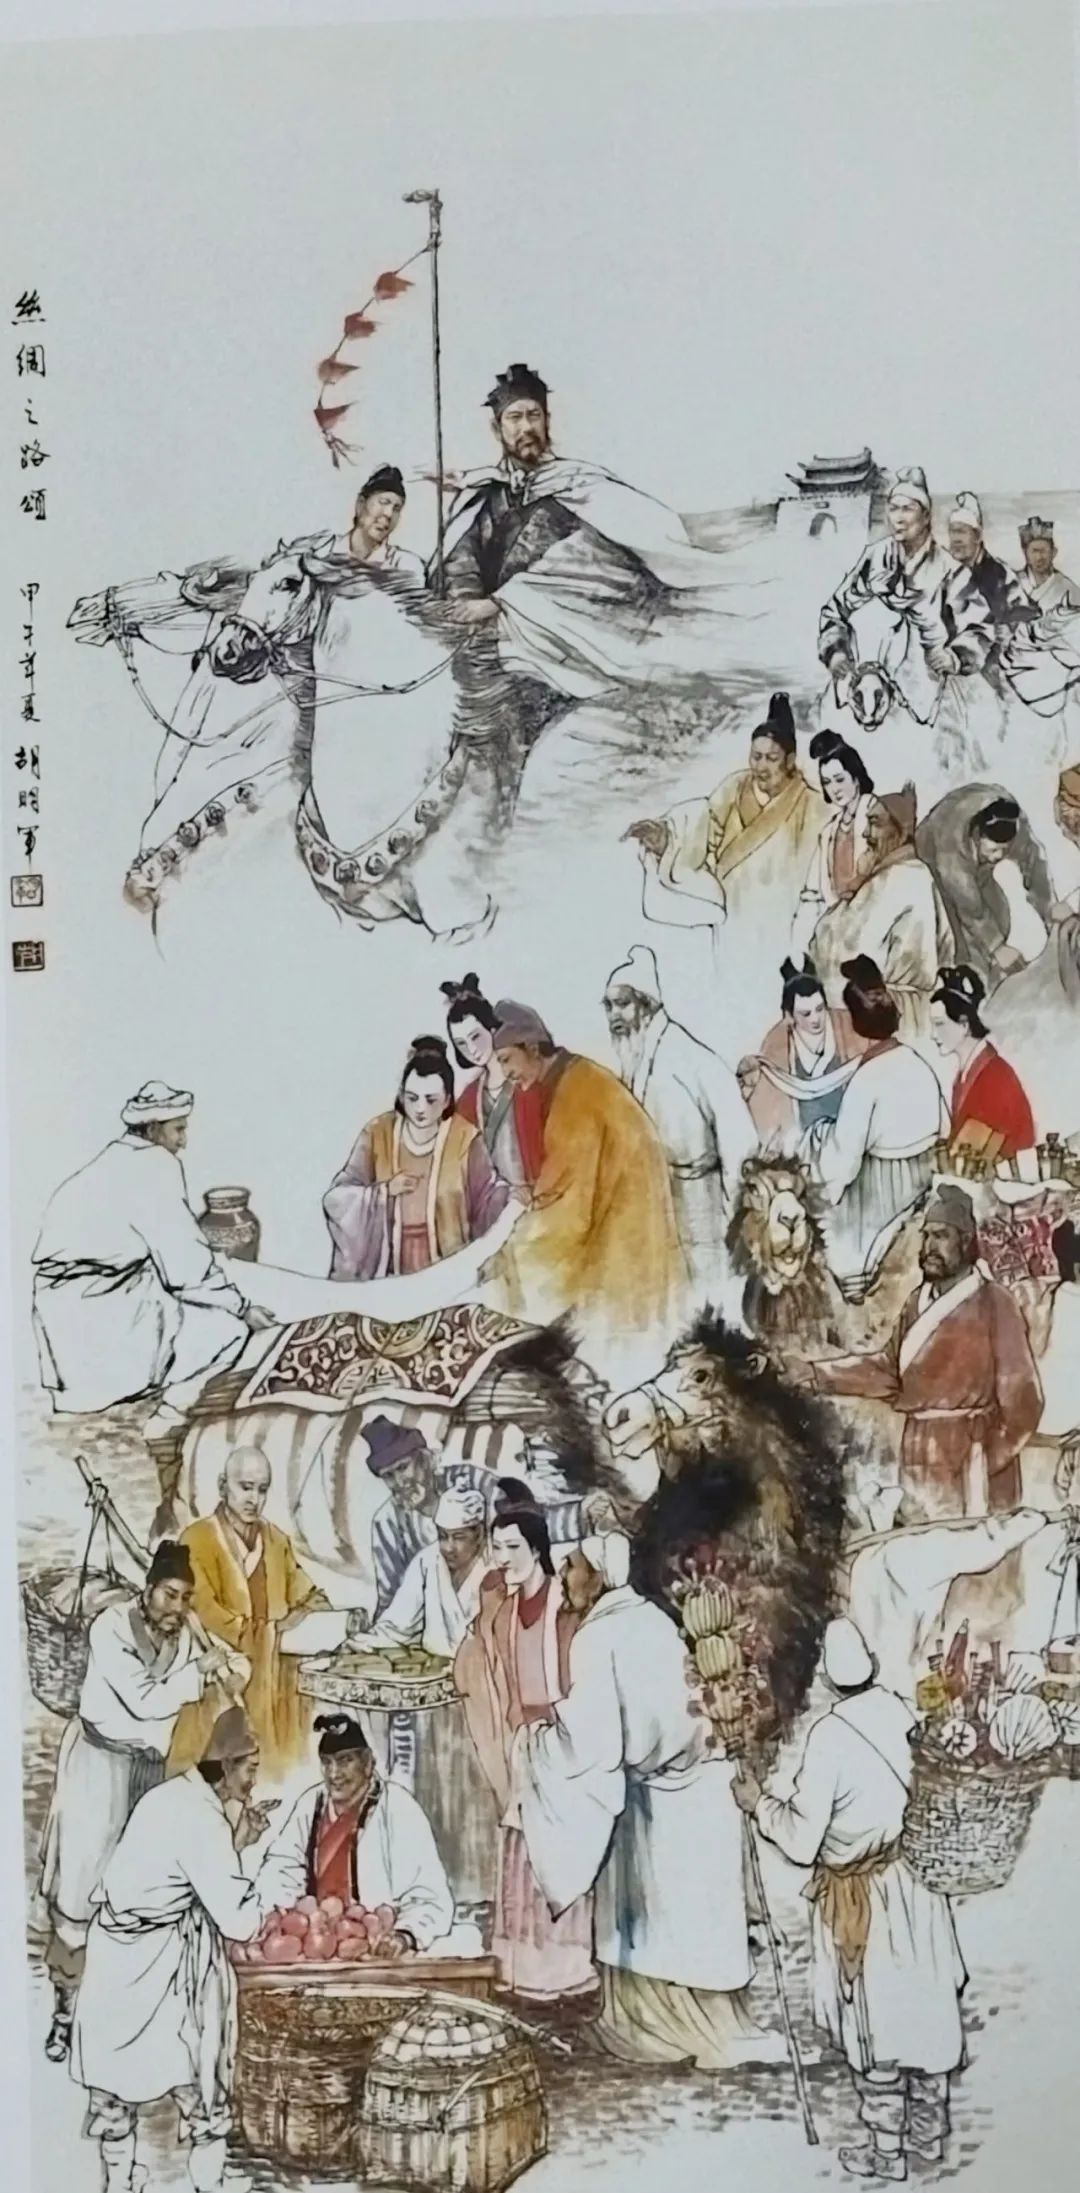 丝绸之路颂 甲午年夏 胡明军